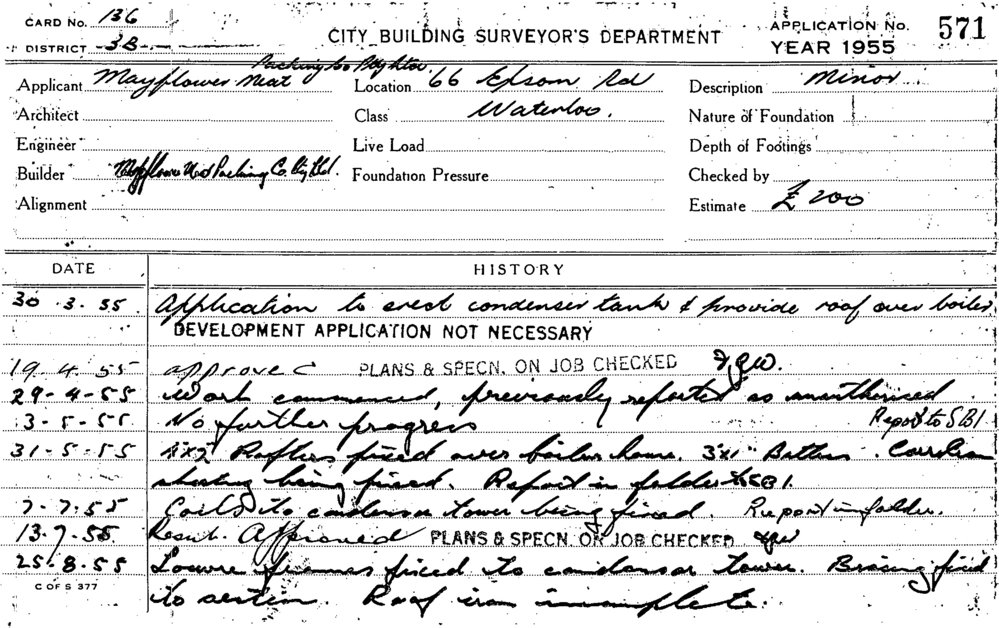 CARD No. 136
DISTRICT 3B
CITY BUILDING SURVEYOR'S DEPARTMENT
APPLICATION No. 571
YEAR 1955
Packing Co Pty Ltd
Applicant Mayflower Meat
Location 66 Epsom Rd
Description Minor
Architect
Class Waterloo.
Nature of Foundation
Engineer
Live Load
Depth of Footings
Builder Mayflower Meat Packing Co. Pty Ltd.
Foundation Pressure
Checked by
Alignment
Estimate £ 200
DATE HISTORY
30.3.55 Application to erect condenser tank & provide roof over boiler
DEVELOPMENT APPLICATION NOT NECESSARY
19.4.55 approved PLANS & SPECN. ON JOB CHECKED
29-4-55 Work commenced, previously reported as unauthorised
3-5-55 No further progress Report to SBI
31-5-55 Rafters fixed over boiler house. 3"x1" Battens.
sheeting being fixed. Report in folder to SBI.
7-7.55 Coils to condensor tower being fixed. Report in folder.
13.7.55 Resub. Approved PLANS & SPECN. ON JOB CHECKED
25.8.55 Louvre frames fixed to condensor tower. Bracing fixed
to section. Roof iron incomplete.
C OF S 377